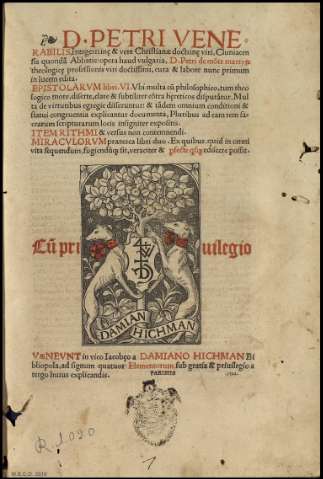 D. PETRI VENE
RABILIS, integerrimę & vere Christianæ doctrinę viri, Cluniacen
sis quondā Abbatis opera haud vulgaria, D. Petri de mōte martyrū
theologicę professionis viri doctissimi, cura & labore nunc primum
in lucem edita.
EPISTOLARVM libri. VI. Vbi multa cū philosophico, tum theo
logico more diserte, docte & subtiliter cōtra hęreticos disputātur. Mul
ta de virtutibus egregie disseruntur: & eisdem omnium conditioni &
statui congruentia explicantur documenta. Pluribus ad eam rem sa
crarum scripturarum locis insigniter expositis.
ITEM RITHMI & versus non contemnendi.
MIRACVLORVM præterea libri duo. Ex quibus quid in omni
vita sequendum, fugiendū q; sit, veraciter & ꝓfecte q̄sq; ediscere possit.
Cū pri uilegio
DAMIAN HICHMAN
VÆNEVNT in vico Iacobęo a DAMIANO HICHMAN Bi
bliopola, ad signum quatuor Elementorum sub gratia & priuilegio a
tergo huius explicandis.
R. 1020
1